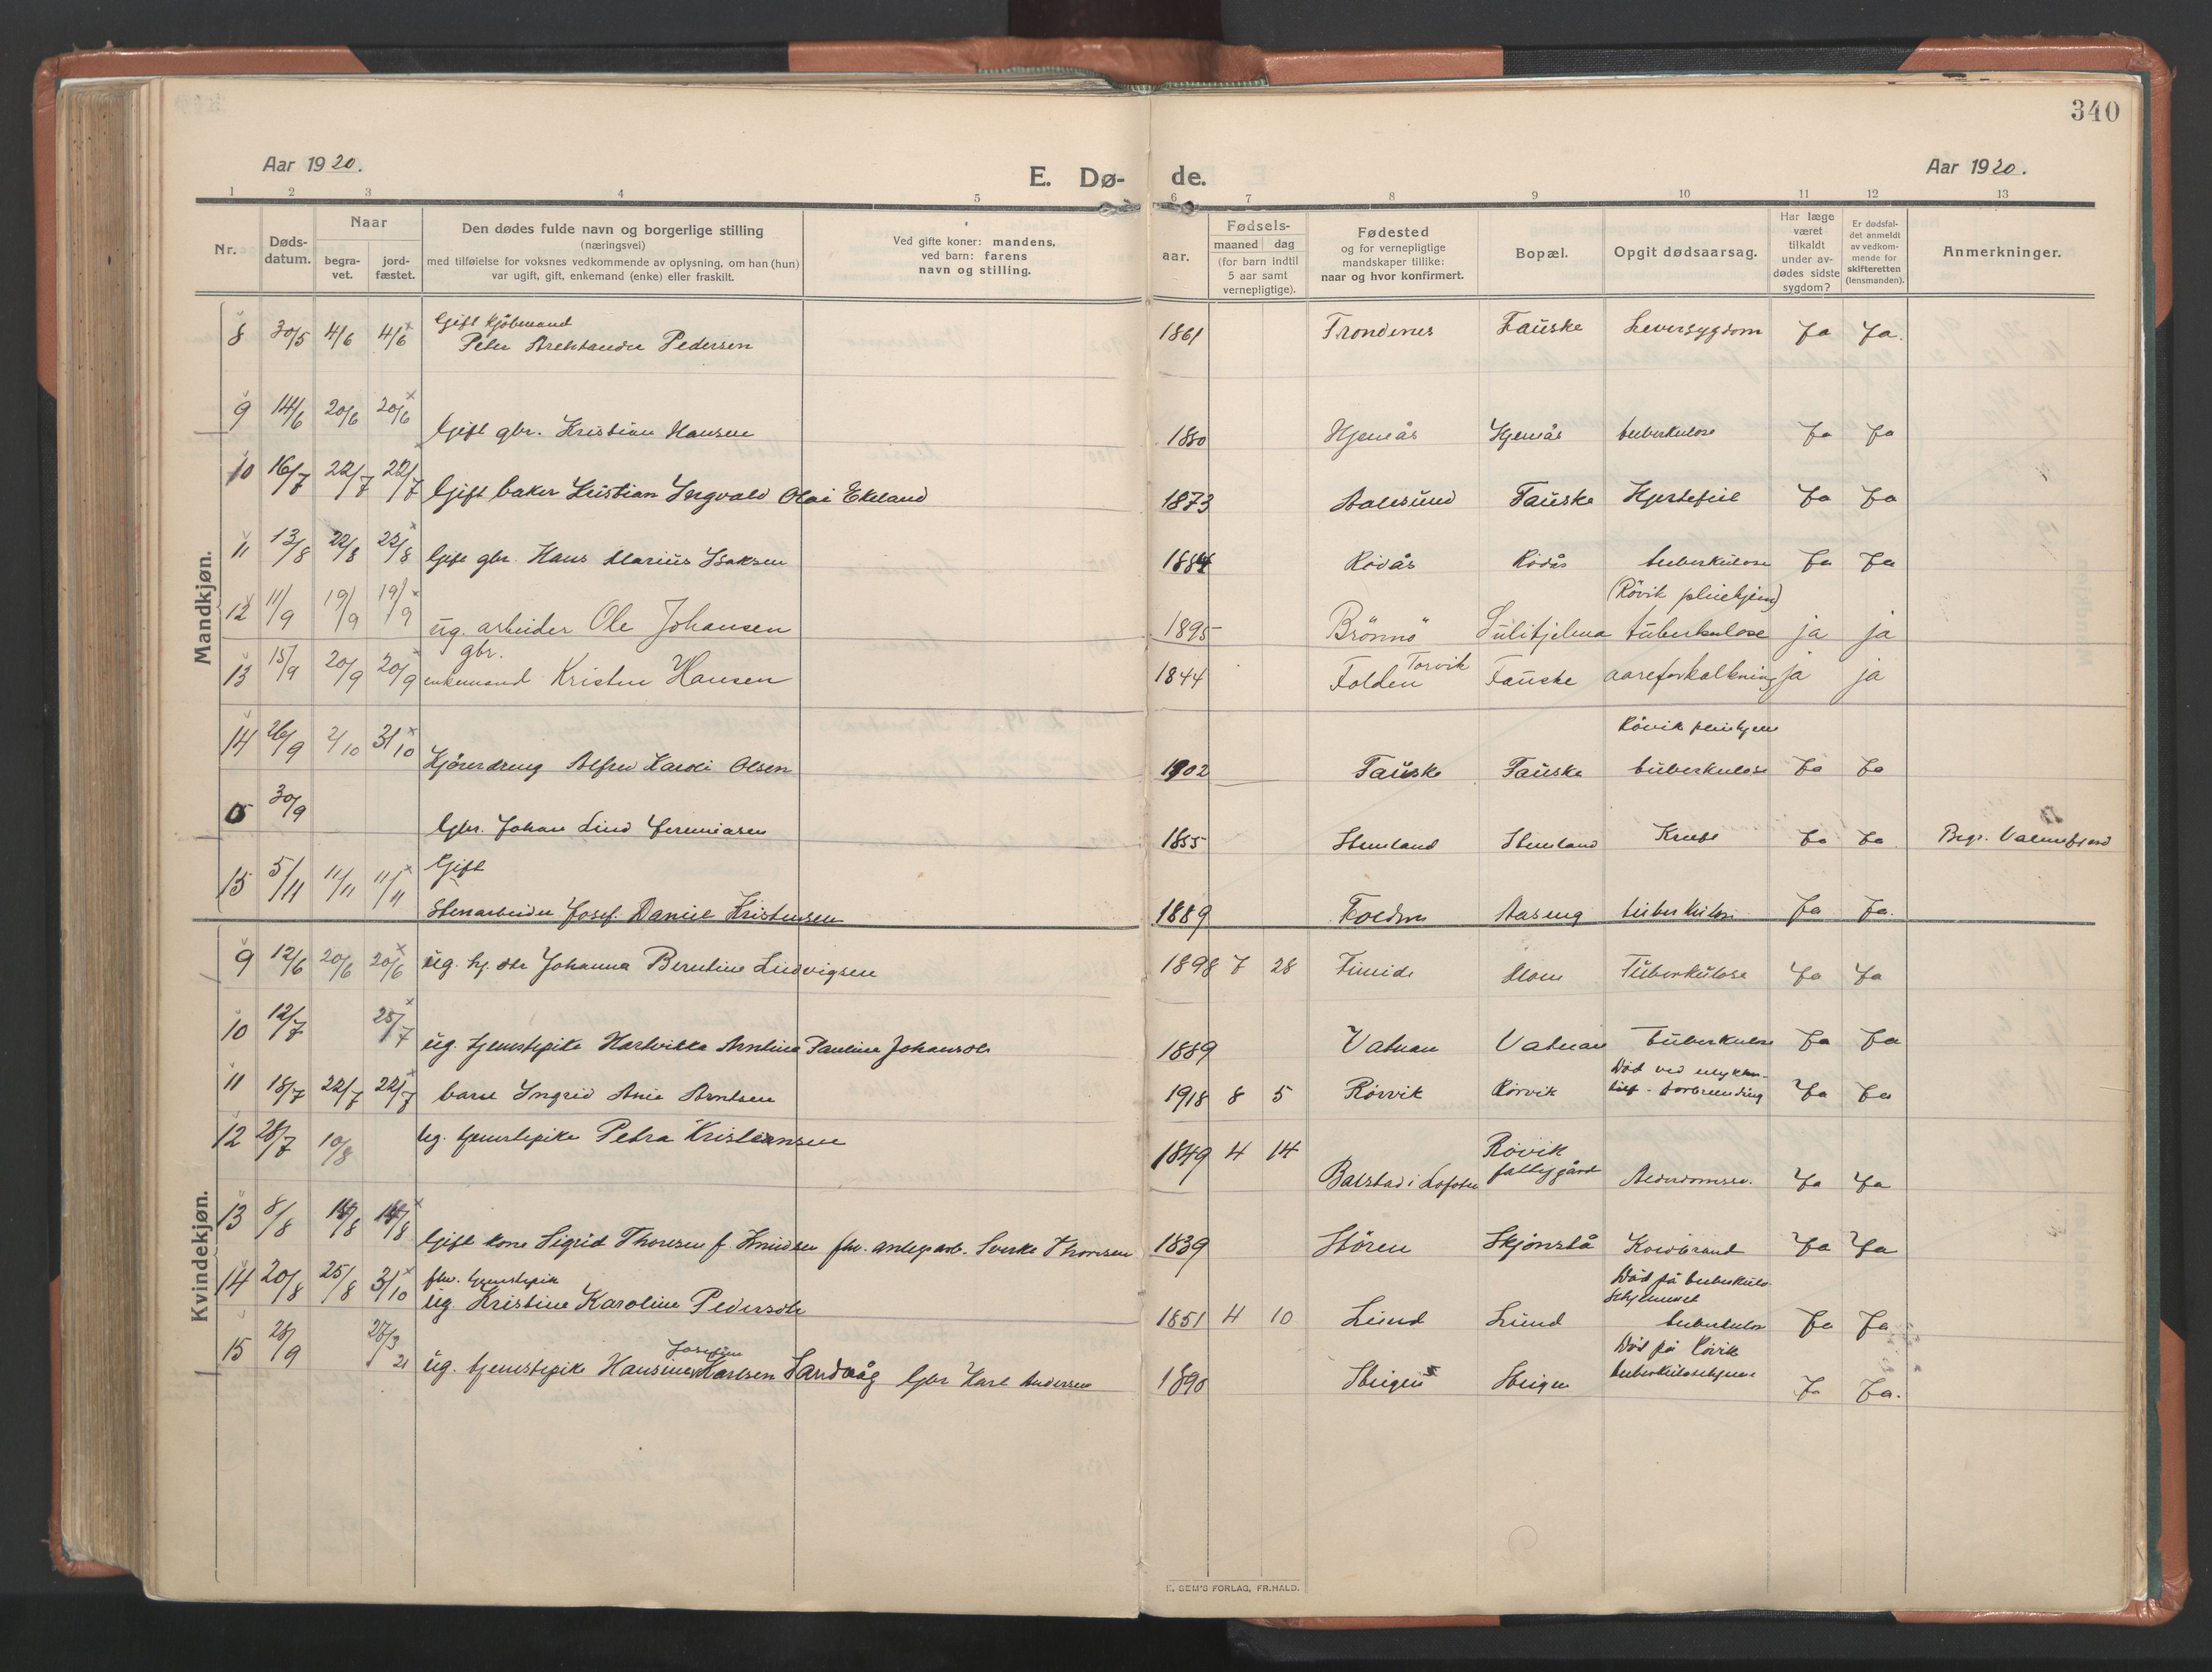 340
Aar 1920.
E. Dø- de.
Aar 1920.
1 2 3 4 5 6 7 8 9 10 11 12 13
Nr.
Døds-
datum.
Naar
begra-
vet.
jord-
fæstet.
Den dødes fulde navn og borgerlige stilling
(næringsvei)
med tilføielse for voksnes vedkommende av oplysning, om han (hun)
var ugift, gift, enkemand (enke) eller fraskilt.
Ved gifte koner: mandens,
ved barn: farens
navn og stilling.
Fødsels-
aar.
maaned dag
(for barn indtil
5 aar samt
vernepligtige).
Fødested
og for vernepligtige
mandskaper tillike:
naar og hvor konfirmert.
Bopæl.
Opgit dødsaarsag.
Har læge
været
tilkaldt
under av-
dødes sidste
sygdom?
Er dødsfal-
det anmeldt
av vedkom-
mende for
skifteretten
(lensmanden).
Anmerkninger.
Mandkjøn.
Gift Kjöbmand
8 30/5 4/6 4/6 Peter Pedersen 1861 Trondenes Fauske Leversygdom Ja Ja.
9 14/6 20/6 20/6 Gift gbr. Kristian Hansen 1880 Hjemås Hjemås tuberkulose Ja Ja
10 16/7 22/7 22/7 Gift baker Kristian Ingvald Olai Ekeland 1873 Aalesund Fauske Hjertefeil Ja Ja
11 13/8 22/8 22/8 Gift gbr. Hans Marius Isaksen 1884 Rödås Rödås tuberkulose Ja Ja
(Rövik pleiehjem)
12 11/9 19/9 19/9 ug. arbeider Ole Johansen 1895 Brönnö Sulitjelma tuberkulose ja ja
gbr.
13 15/9 20/9 20/9 enkemand Kristen Hansen 1844 Folden Torvik Fauske aareforkalkning ja ja
Rövik pleiehjem
14 26/9 2/10 3/10 Kjöredreng Alfred Karoli Olsen 1902 Fauske Fauske tuberkulose Ja Ja
0 30/9 Gbr. Johan Lind Jeremiasen 1855 Stemland Stemland Kreft Ja Ja Begr. Valnesfjord
Gift
15 5/11 11/11 11/11 Stenarbeider Josef Daniel Kristensen 1889 Folden Aaseng tuberkulose Ja Ja.
Kvindekjøn.
9 12/6 20/6 20/6 ug. hj. dtr Johanna Berntine Ludvigsen 1898 7 28 Finneid Moen Tuberkulose Ja Ja
10 12/7 25/7 ug. tjenestepike Hartvikka Arntine Pauline Johansdtr 1889 Vatnan Vatnan Tuberkulose Ja Ja
Död ved ulykkes-
11 18/7 22/7 22/7 barn Ingrid Anie Arntsen 1918 8 5 Rörvik Rörvik tilf - forbrænding Ja Ja
12 28/7 10/8 Ug. tjenestepike Petra Kristiansen 1849 4 14 Balstad i Lofoten Rövik fattiggård Alderdomssv. Ja Ja
13 8/8 14/8 14/8 Gift kone Sigrid Thoresen f. Knudsen fhv. anlegsarb. Sverke Thoresen 1839 Stören Skjönstå Koldbrand Ja Ja
fhv. tjenestepike
Död på tuberkulo-
sehjemmet
14 20/8 25/8 3/10 ug. Kristine Karoline Pedersdtr 1851 4 10 Lund Lund tuberkulose Ja Ja
Josefine
Död på Rövik
15 28/9 27/3 21 ug. tjenestepike Hansine Karlsen Sandvåg Gbr Karl Andersen 1890 Steigen Steigen tuberkulosehjem Ja Ja.
E. SEM'S FORLAG, FR.HALD.